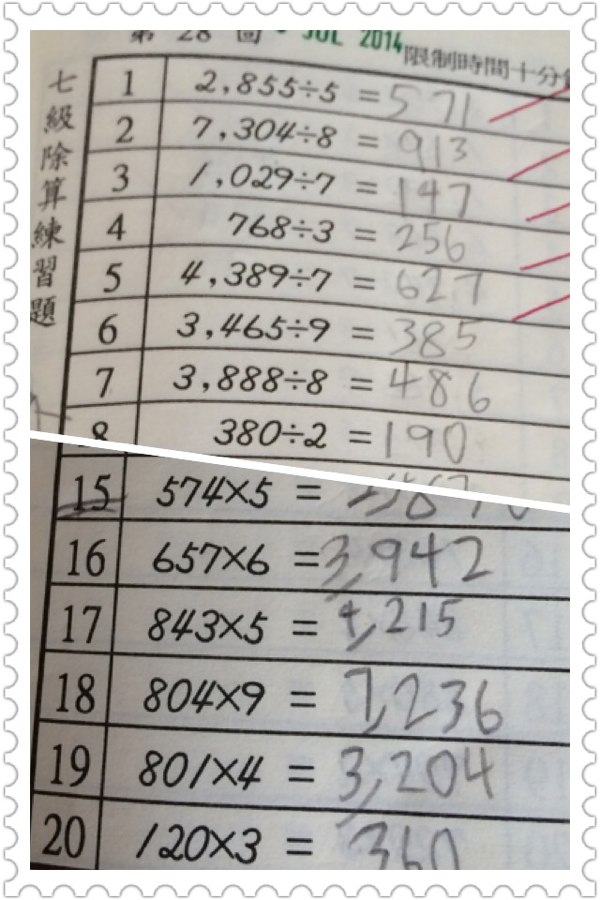 第 28 回 JUL 2014
限制時間十分鐘
七級除算練習題
1 2,855÷5 = 571
2 7,304÷8 = 913
3 1,029÷7 = 147
4 768÷3 = 256
5 4,389÷7 = 627
6 3,465÷9 = 385
7 3,888÷8 = 486
8 380÷2 = 190
15 574×5 =
16 657×6 = 3,942
17 843×5 = 4,215
18 804×9 = 7,236
19 801×4 = 3,204
20 120×3 = 360